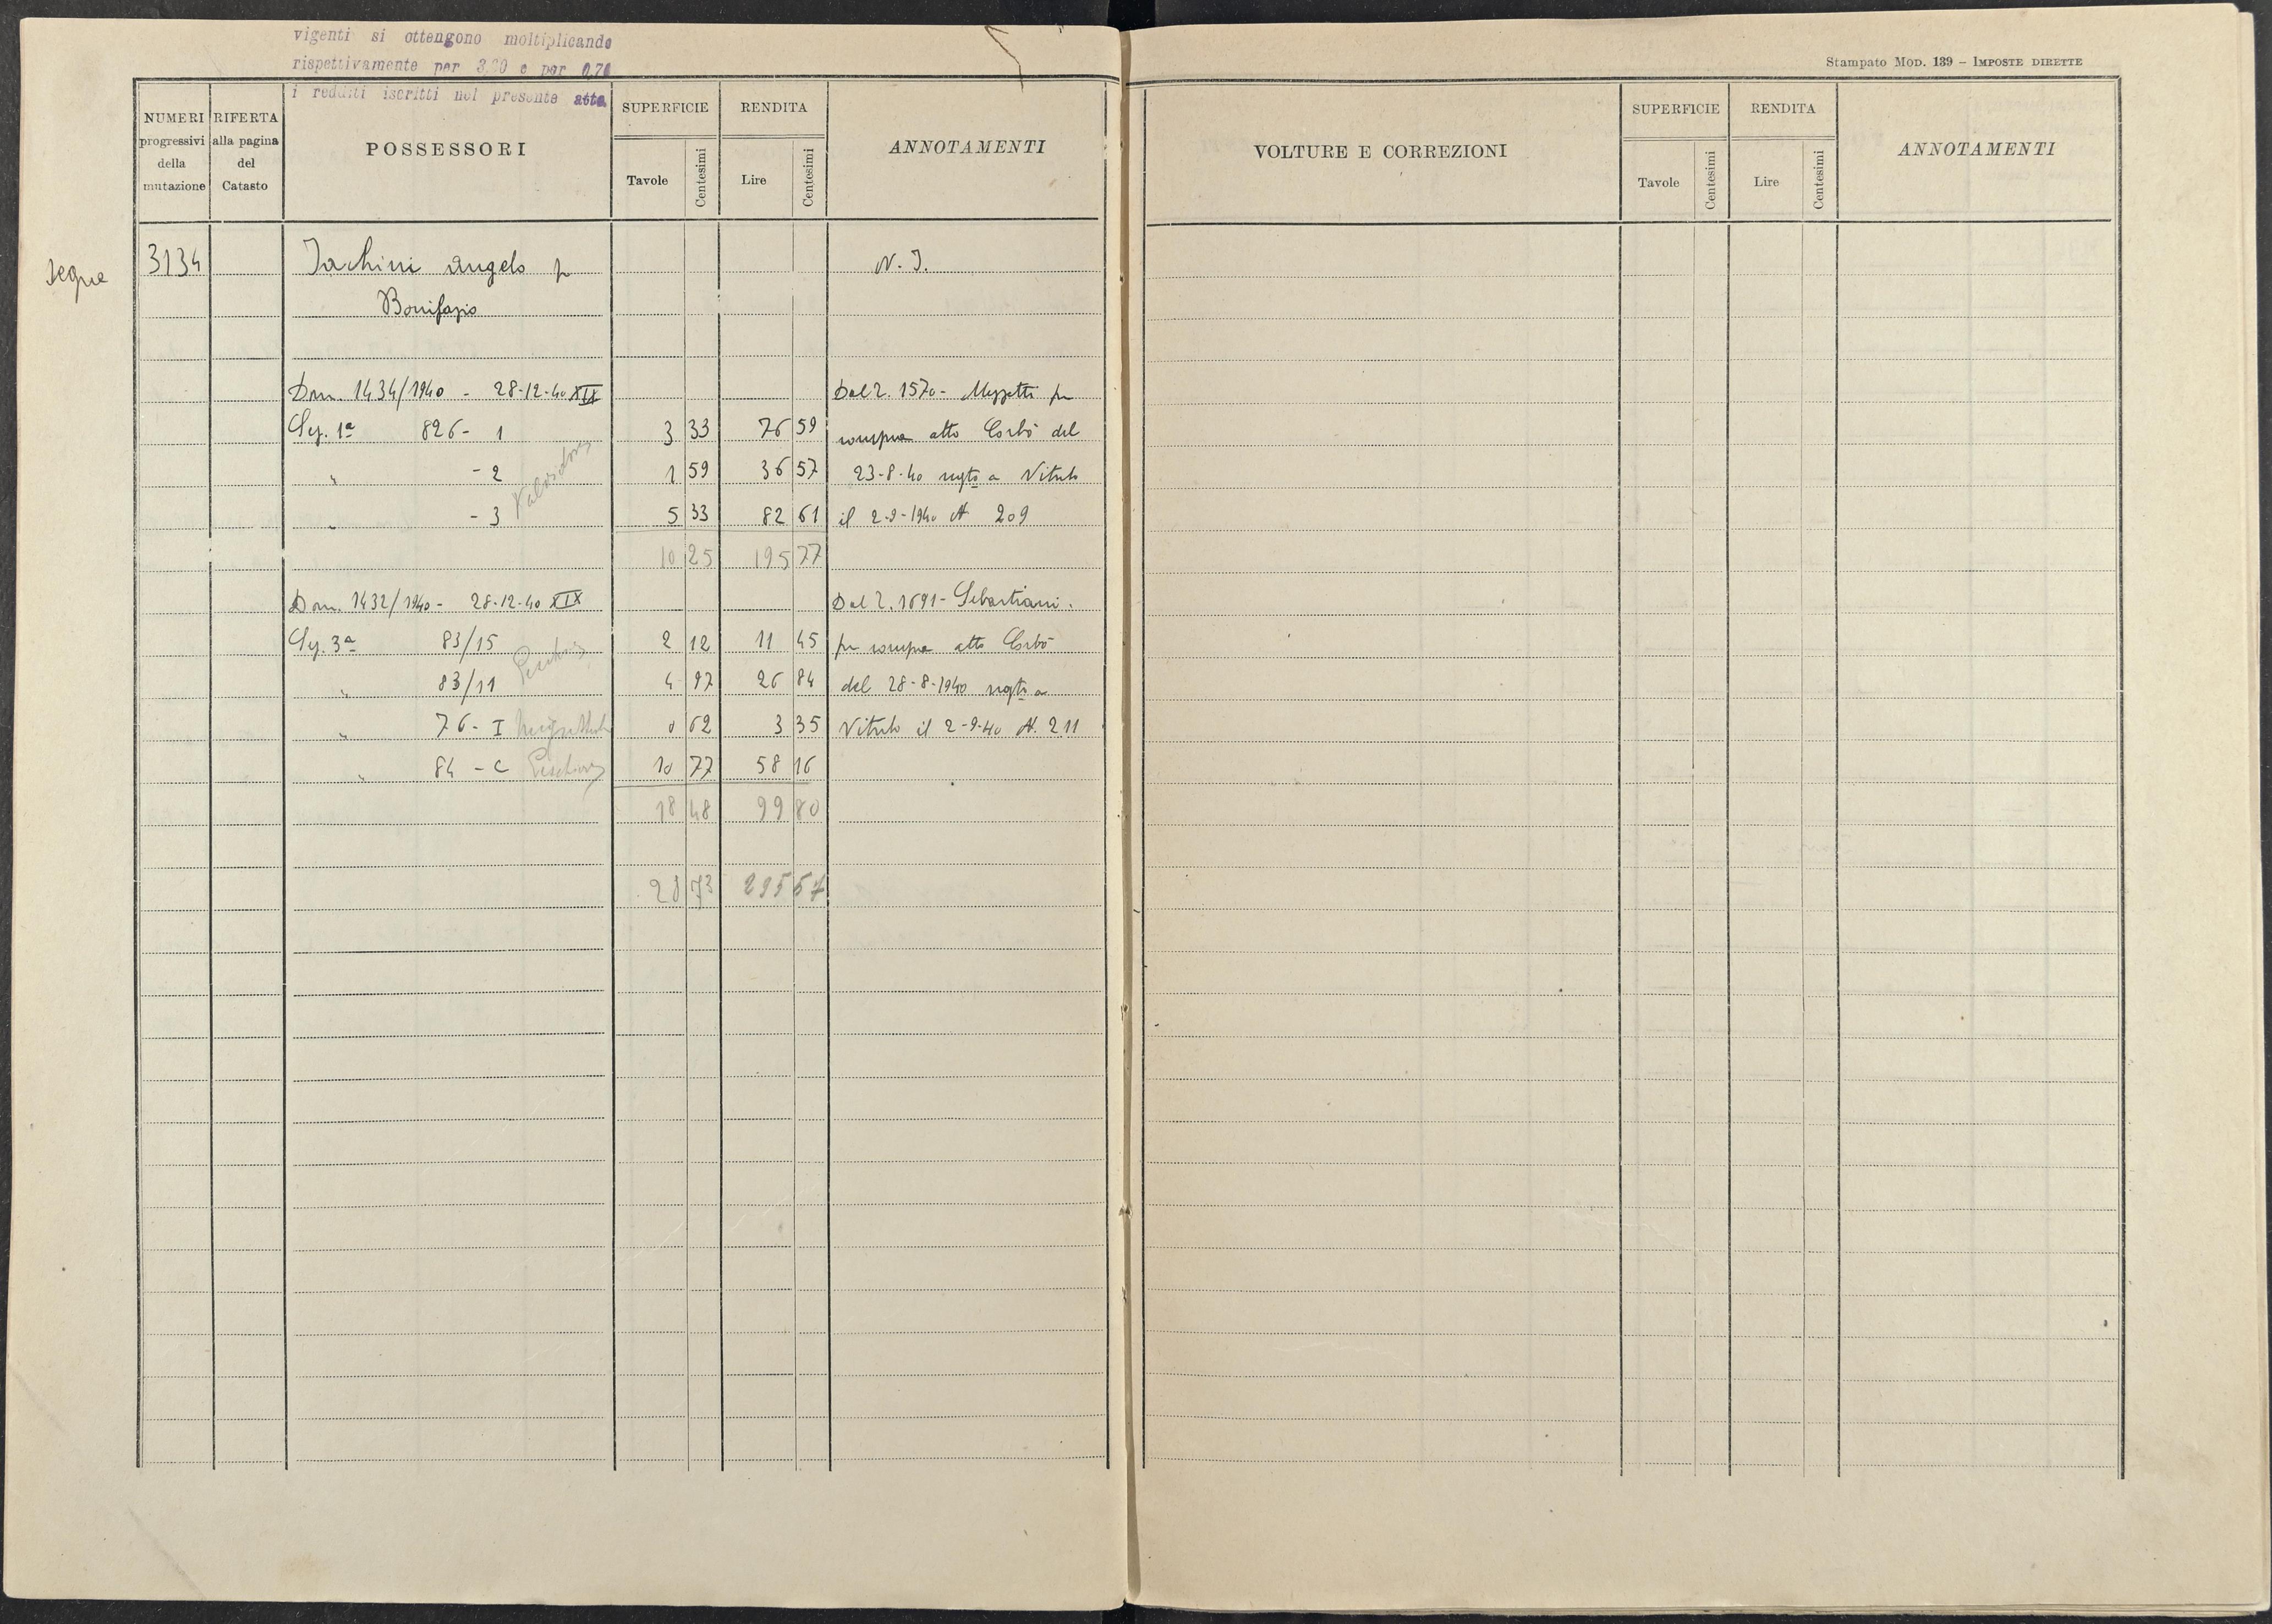 vigenti si ottengono moltiplicando
rispettivamente per 3.20 e per 0,70
i redditi iscritti nel presente atto
Stampato Mod. 139 – Imposte dirette
NUMERI progressivi della mutazione
RIFERTA alla pagina del Catasto
POSSESSORI
SUPERFICIE Tavole Centesimi
RENDITA Lire Centesimi
ANNOTAMENTI
VOLTURE E CORREZIONI
SUPERFICIE Tavole Centesimi
RENDITA Lire Centesimi
ANNOTAMENTI
segue 3134 Iachini Angelo fu N. I.
Bonifazio
Dom. 1434/1940 - 28-12-40 XIX Dal 2. 1570 - Mezzetti per
Sez. 1ª 826 - 1 3 33 76 59 compra atto Corbò del
" - 2 1 59 36 57 23-8-40 regto a Viterbo
" - 3 5 33 82 61 il 2-9-1940 N 209
10 25 195 77
Dom. 1432/1940 - 28-12-40 XIX Dal 2. 1691 - Sebastiani.
Sez. 3ª 83/15 2 12 11 45 per compra atto Corbò
" 83/11 4 97 26 84 del 28-8-1940 regto a
" 76 - I 0 62 3 35 Viterbo il 2-9-40 N. 211
" 84 - C 10 77 58 16
18 48 99 80
28 73 295 57